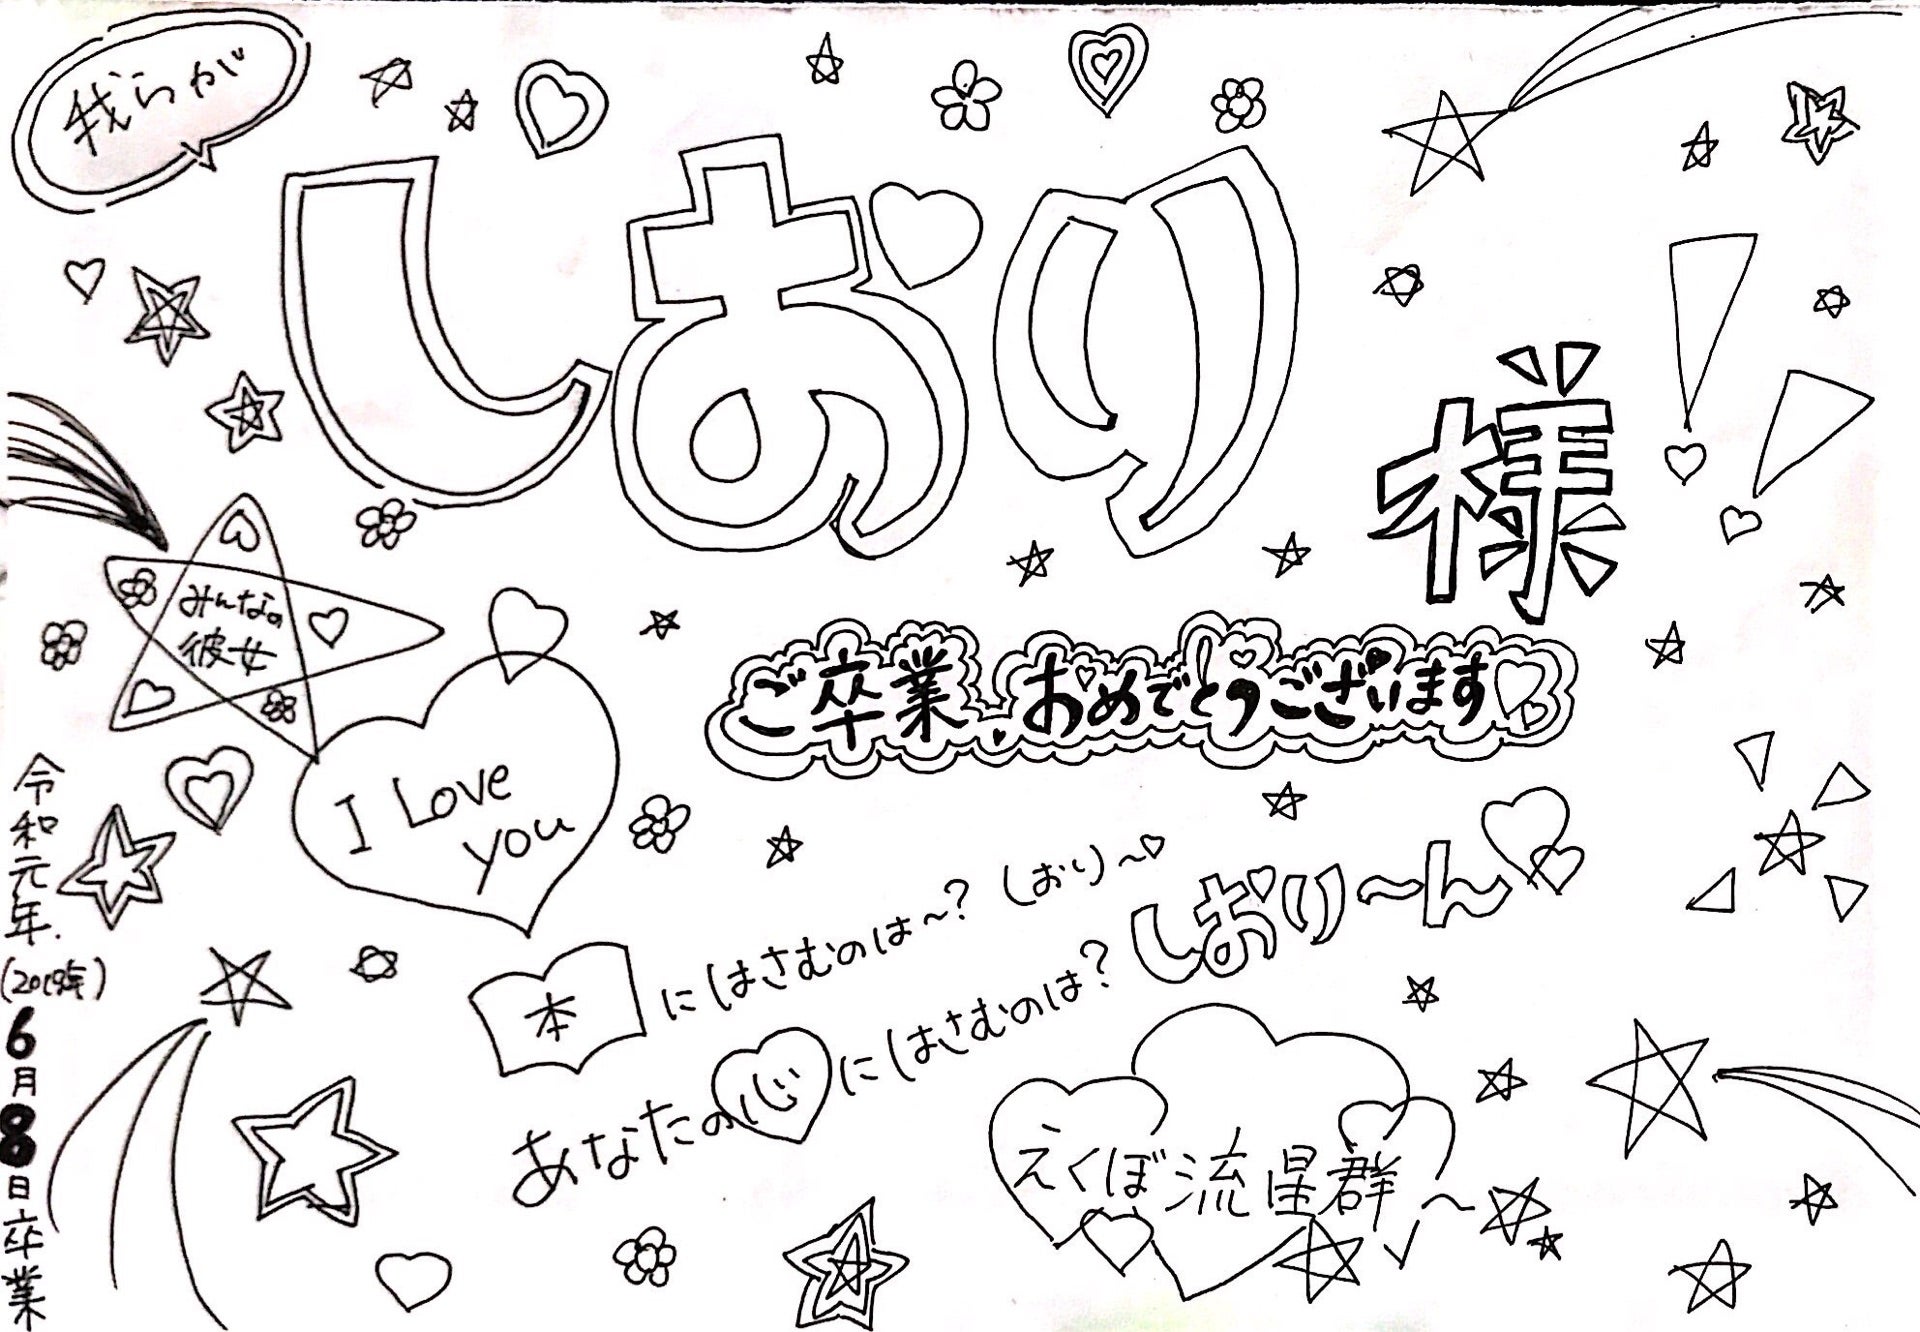 我らが
しおり
様
!!
みんなの
彼女
ご卒業、おめでとうございます
I Love
you
本にはさむのは〜?しおり〜♡
あなたの心にはさむのは?しおり〜ん
えくぼ流星群〜
令和元年.
(2019年)
6月8日卒業